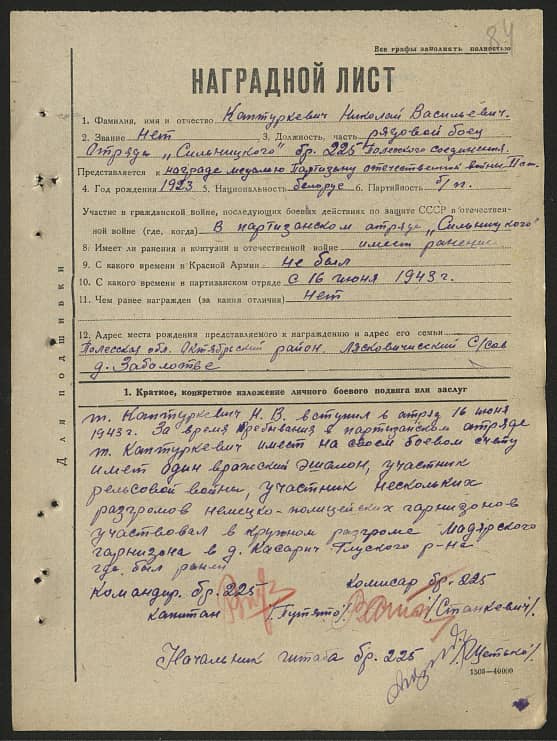 84
Все графы заполнять полностью
НАГРАДНОЙ ЛИСТ
1. Фамилия, имя и отчество Каптуркевич Николай Васильевич.
2. Звание Нет 3. Должность, часть рядовой боец
Отряда „Сильницкого" бр. 225 Полесского соединения.
Представляется к награде медалью Партизану отечественной войны II ст.
4. Год рождения 1923 5. Национальность белорус 6. Партийность б/п.
Участие в гражданской войне, последующих боевых действиях по защите СССР в отечествен-
ной войне (где, когда) В партизанском отряде „Сильницкого"
8. Имеет ли ранения и контузии в отечественной войне имеет ранение
9. С какого времени в Красной Армии не был
10. С какого времени в партизанском отряде с 16 июня 1943 г.
11. Чем ранее награжден (за какия отличия) Нет
12. Адрес места рождения представляемого к награждению и адрес его семьи
Полесская обл. Октябрьский район. Лясковичисский С/сов
д. Заболотье
Для подшивки
1. Краткое, конкретное изложение личного боевого подвига или заслуг
т. Каптуркевич Н. В. вступил в отряд 16 июня
1943 г. За время пребывания в партизанском отряде
т. Каптуркевич имеет на своем боевом счету
имеет один вражский эшалон, участник
рельсовой войны, участник нескольких
разгромов немецко-полицейских гарнизонов
участвовал в кружном разгроме Мадярского
гарнизона в д. Касарич Глуского р-на
где был ранен
Командир. бр. 225 комисар бр. 225
капитан /Гутято/. /Станкевич/.
Начальник штаба бр. 225
1303—40000